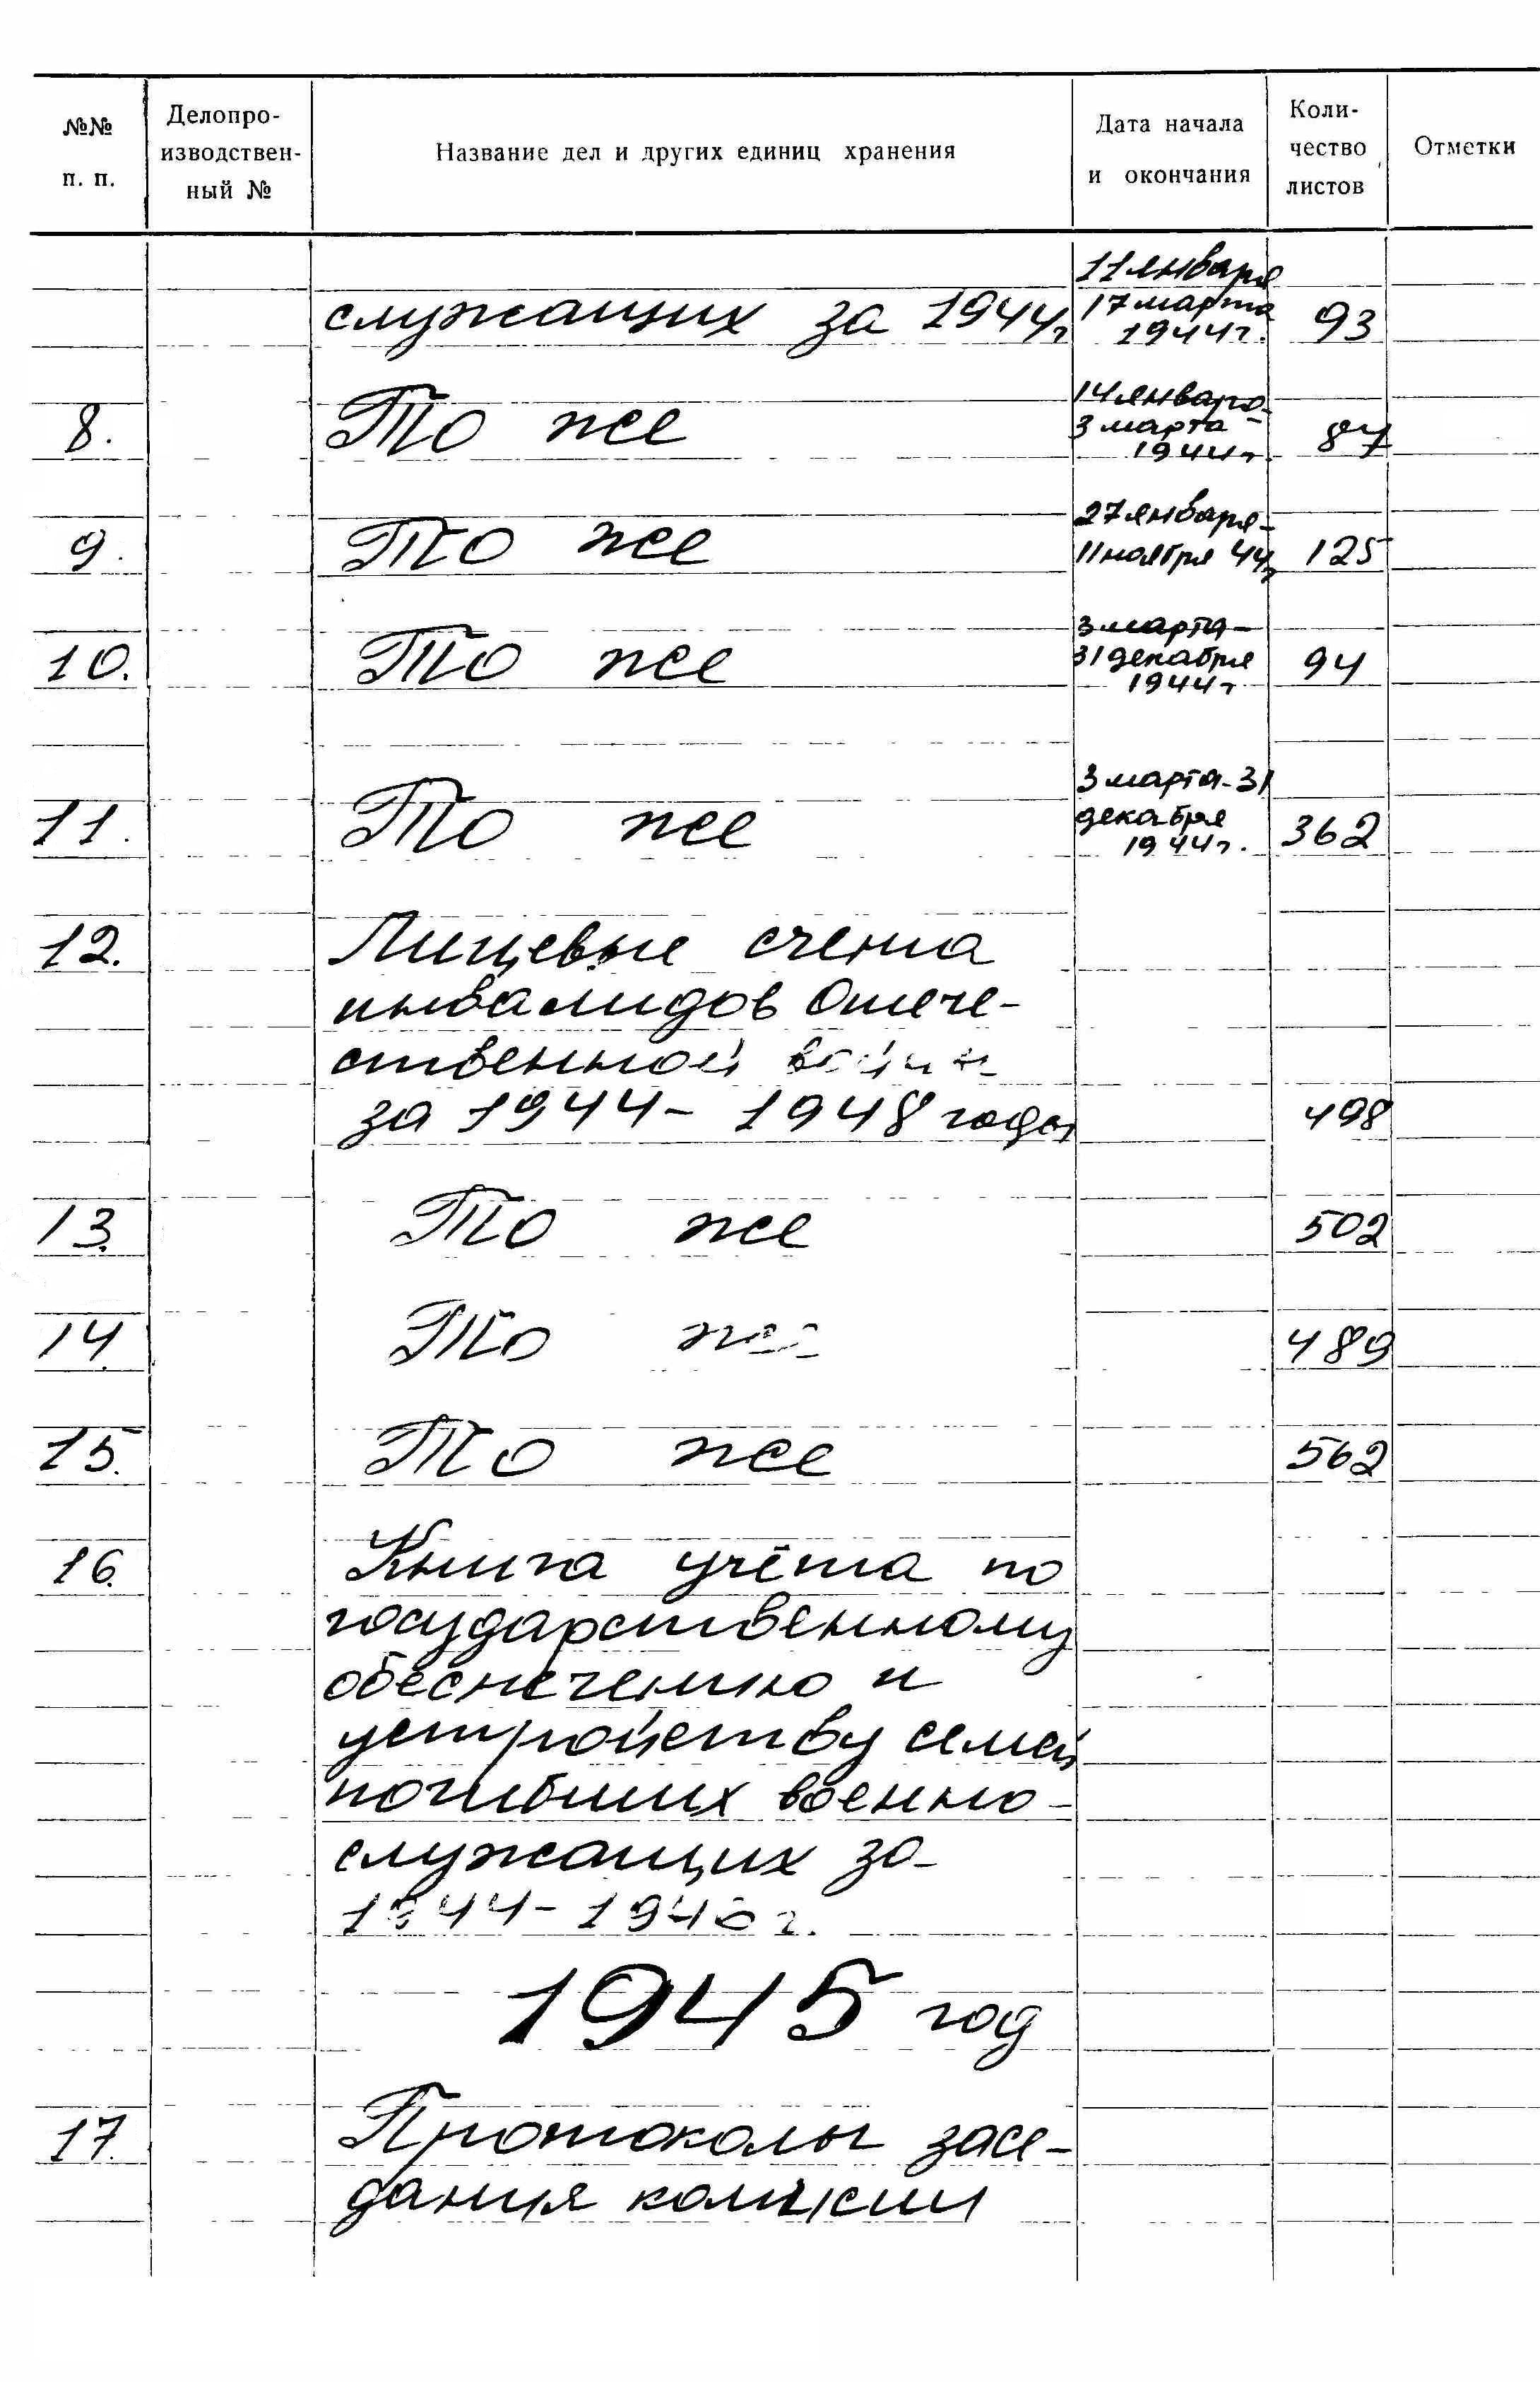 №№ п. п.
Делопро-
изводствен-
ный №
Название дел и других единиц хранения
Дата начала
и окончания
Коли-
чество
листов
Отметки
11 января
служащих за 1944г 17 марта 93
1944г.
14 января-
8. То же 3 марта 87
1944г.
27 января-
9. То же 11 ноября 44г 125
3 марта-
10. То же 31 декабря 94
1944г
3 марта-31
11. То же декабря 362
1944г.
12. Лицевые счета
инвалидов Отече-
ственной войны
за 1944- 1948 годы 498
13. То же 502
14. То же 489
15. То же 562
16. Книга учёта по
государственному
обеспечению и
устройству семей
погибших военно-
служащих за
1944-
1945 год
17. Протоколы засе-
дания комиссии